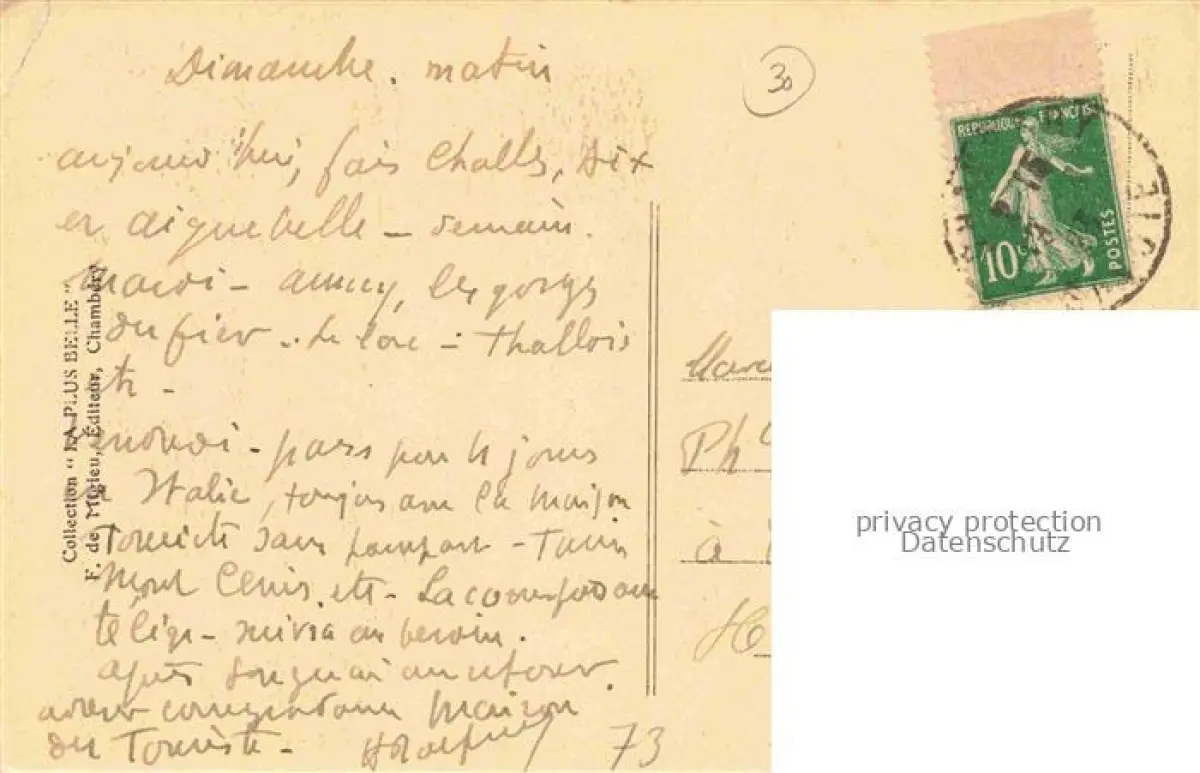 Dimanche. matin
30
aujourd'hui, fais Challes, Aix
en aiguebelle - demain.
mardi - annecy, les gorges
du fier - Le lac - Thallois
etc -
pars pour 4 jours
Italie, toujours avec la maison
Touriste sans passport - Turin
Mont Cenis. etc - La correspondance
suivra au besoin.
après
correspondance Maison
du Touriste -
73
Collection "LA PLUS BELLE"
F. de Migieu, Éditeur, Chambéry
REPUBLIQUE FRANÇAISE
10c
POSTES
Ph
à
H
privacy protection
Datenschutz